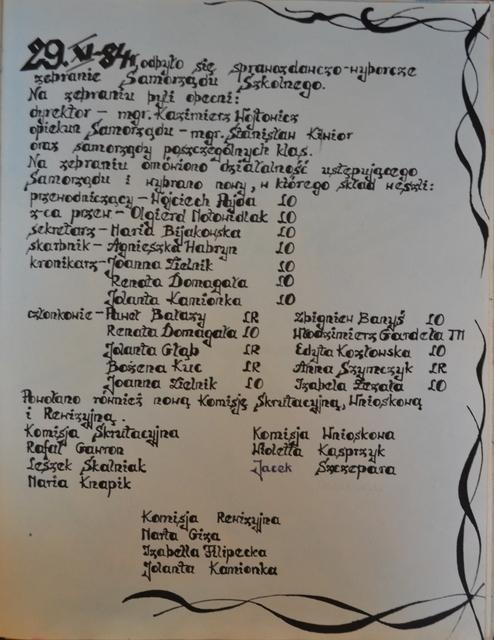 29.XI-84r. odbyło się sprawozdawczo-wyborcze
zebranie Samorządu Szkolnego.
Na zebraniu byli obecni:
dyrektor – mgr. Kazimierz Wojtowicz
opiekun Samorządu – mgr. Stanisław Kiwior
oraz samorządy poszczególnych klas.
Na zebraniu omówiono działalność ustępującego
Samorządu i wybrano nowy, w którego skład weszli:
przewodniczący – Wojciech Hajda LO
z-ca przew – Olgierd Notowidlak LO
sekretarz – Maria Bijakowska LO
skarbnik – Agnieszka Habryn LO
kronikarz – Joanna Zielnik LO
Renata Domagała LO
Jolanta Kamionka LO
członkowie – Paweł Bałazy LR Zbigniew Banyś LO
Renata Domagała LO Włodzimierz Gardeła TM
Jolanta Głąb LR Edyta Kozłowska LO
Bożena Kuc LR Anna Szymczyk LR
Joanna Zielnik LO Izabela Zezała LO
Powołano również nową Komisję Skrutacyjną, Wnioskową
i Rewizyjną.
Komisja Skrutacyjna Komisja Wnioskowa
Rafał Gawron Wioletta Kasprzyk
Leszek Skalniak Jacek Szczepara
Maria Knapik
Komisja Rewizyjna
Marta Giza
Izabella Filipecka
Jolanta Kamionka